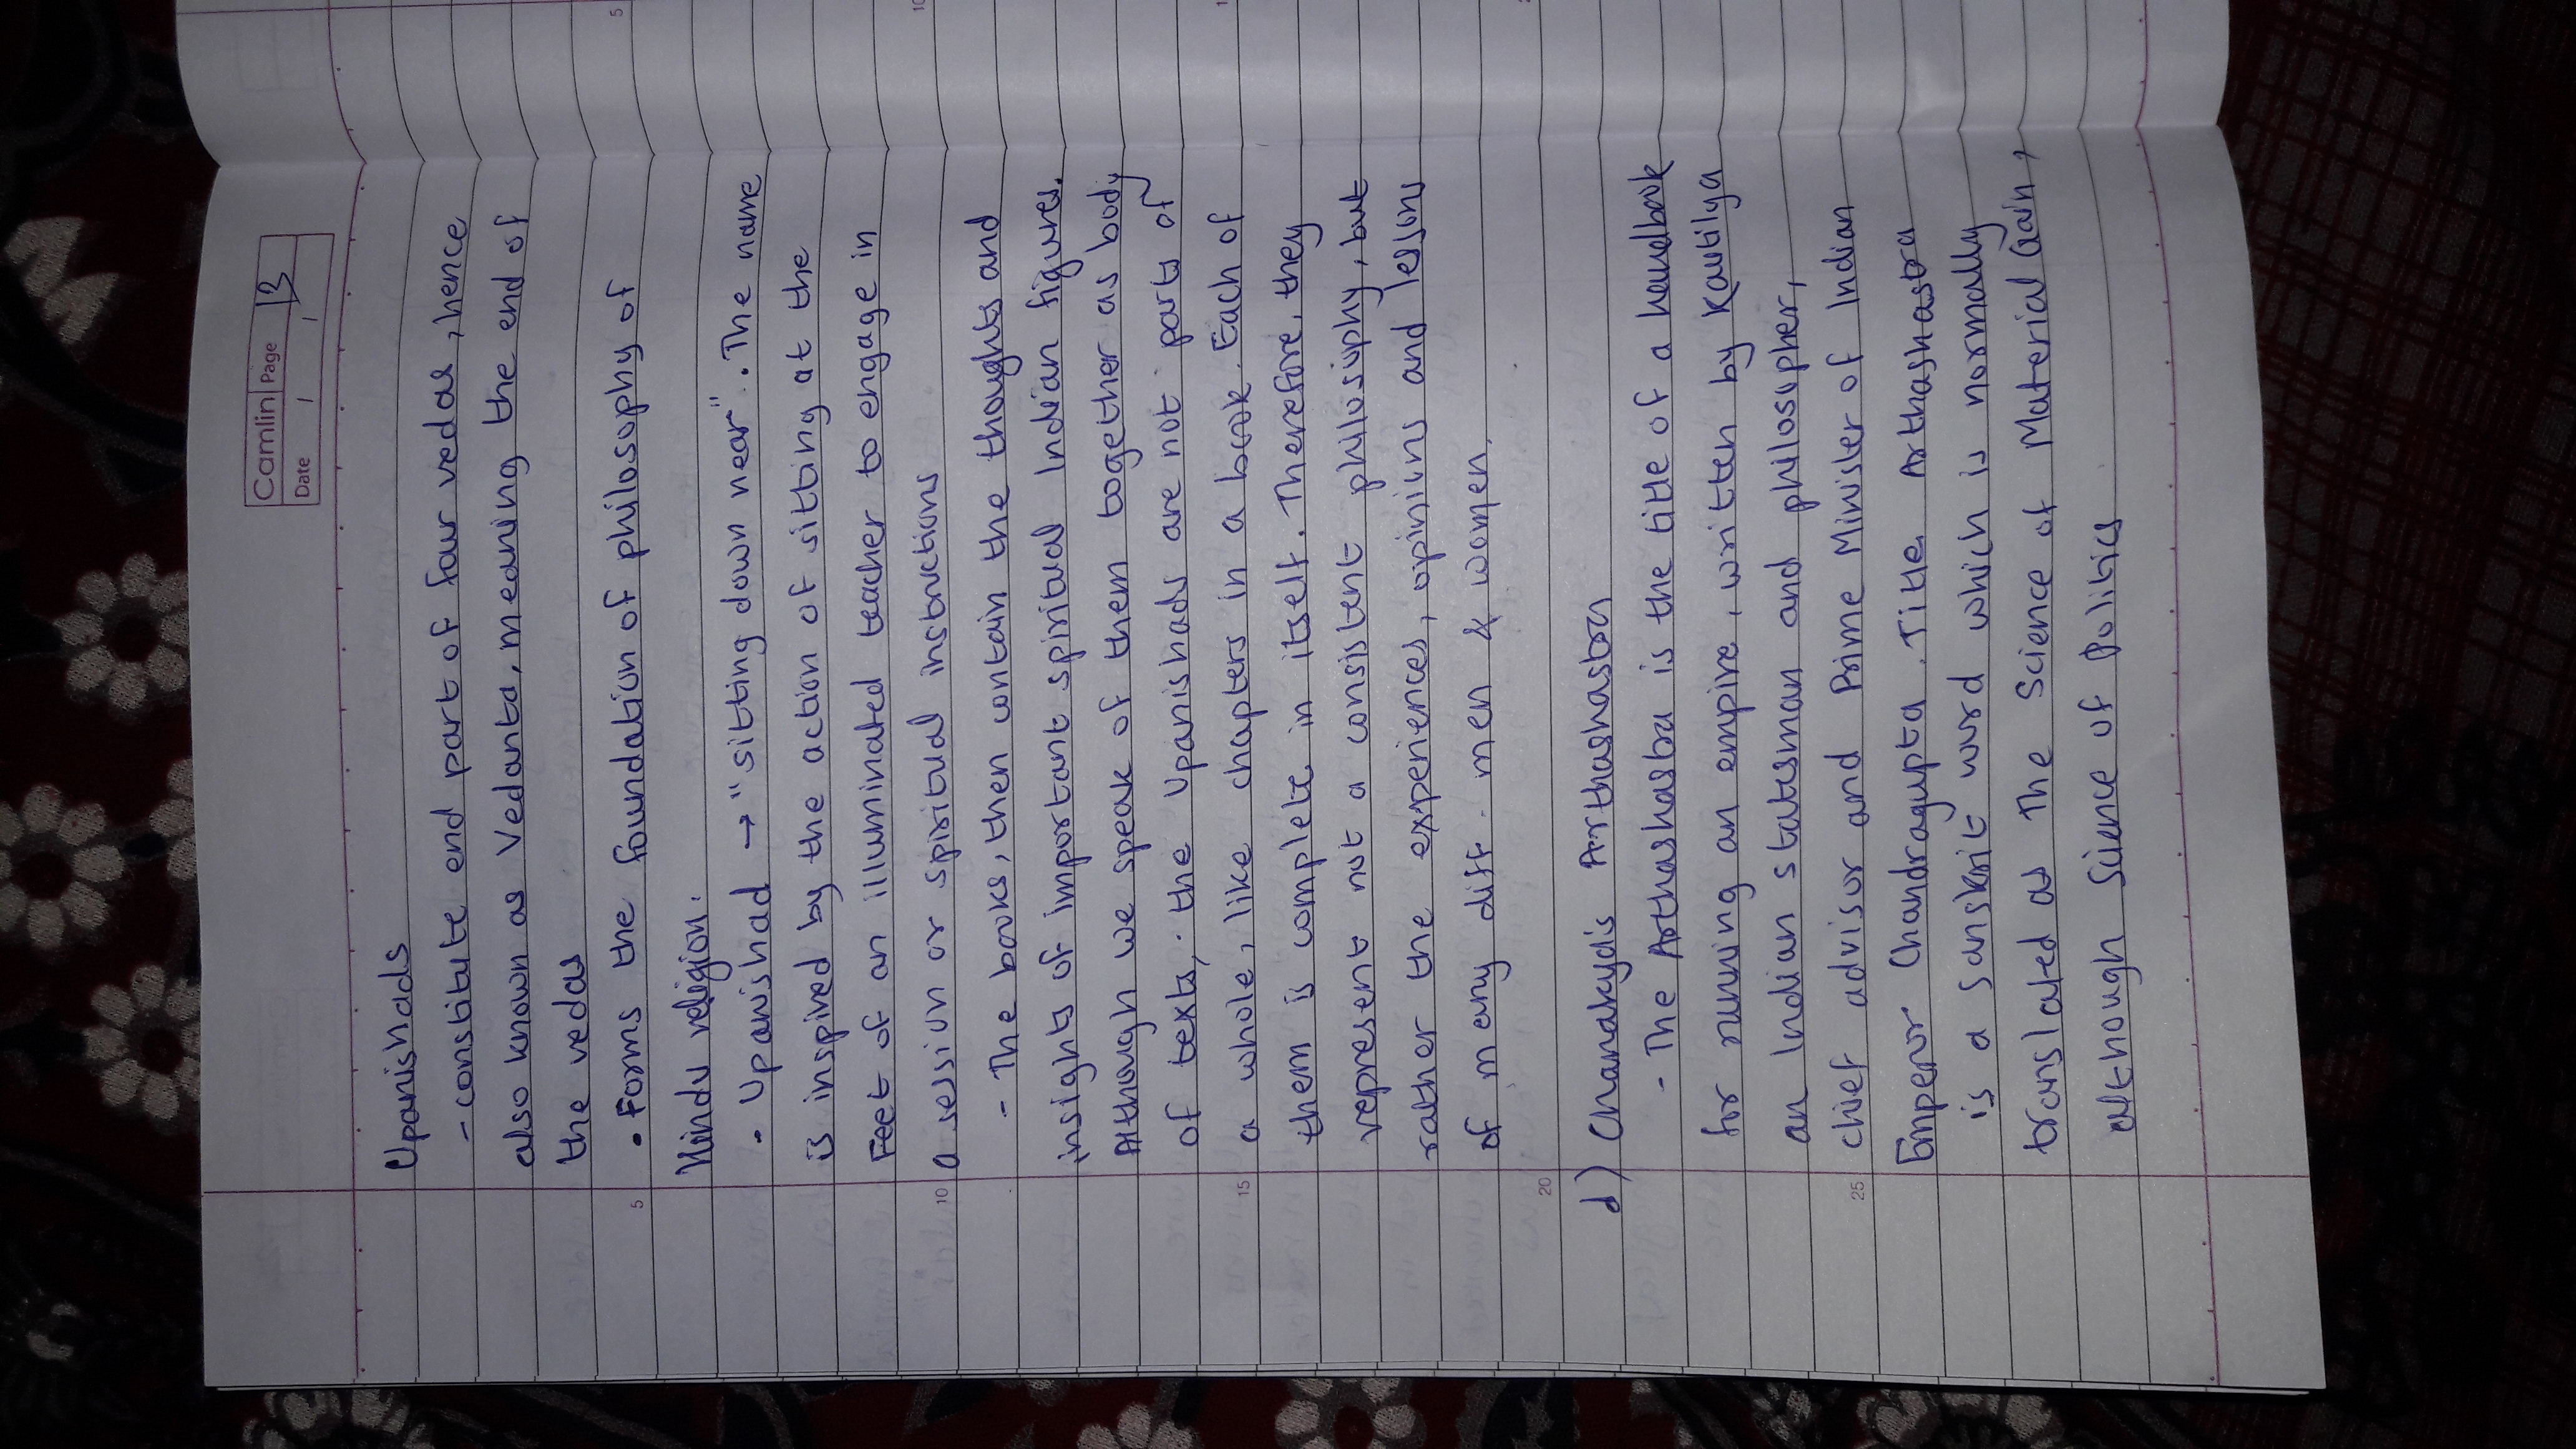 Camlin Page 13
Date / /
Upanishads
- constitute end part of four vedas, hence
also known as Vedanta, meaning the end of
the vedas
5 • Forms the foundation of philosophy of
Hindu religion.
- Upanishad → "sitting down near". The name
is inspired by the action of sitting at the
Feet of an illuminated teacher to engage in
10 a session or spiritual instructions
- The books, then contain the thoughts and
insights of important spiritual Indian figures.
Although we speak of them together as body
of texts, the Upanishads are not parts of
15 a whole, like chapters in a book. Each of
them is complete in itself. Therefore, they
represent not a consistent philosophy, but
rather the experiences, opinions and lessons
of many diff. men & women.
20
d) Chanakya's Arthashastra
- The Arthashastra is the title of a handbook
for running an empire, written by Kautilya
an Indian statesman and philosopher,
25 chief advisor and Prime Minister of Indian
Emperor Chandragupta. Title Arthashastra
is a Sanskrit word which is normally
translated as The Science of Material Gain,
although Science of Politics
5
10